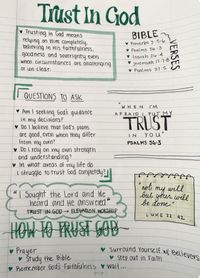 Trust In God
Trusting in God means
relying on Him completely,
believing in His faithfulness,
goodness and sovereignty even
when circumstances are challenging
or un clear.
BIBLE
VERSES
Proverbs 3:5-6
Psalms 56:3
Isaiah 26:4
Jeremiah 17:7-8
Psalms 31:5
QUESTIONS TO ASK
Am I seeking God's guidance
in my decisions?
Do I believe that God's plans
are good, even when they differ
from my own?
Do I rely on my own strength
and understanding?
In what areas of my life do
I struggle to trust God completely?
"WHEN I'M
AFRAID I PUT MY
TRUST
IN YOU"
PSALMS 56:3
I Sought the Lord and He
heard and He answered"
TRUST IN GOD - ELEVATION WORSHIP
"not my will
but your will
be done"
LUKE 22:42
HOW TO TRUST GOD
Prayer
Study the Bible
Remember God's Faithfulness
Surround Yourself w/ Believers
Step out in Faith
Wait